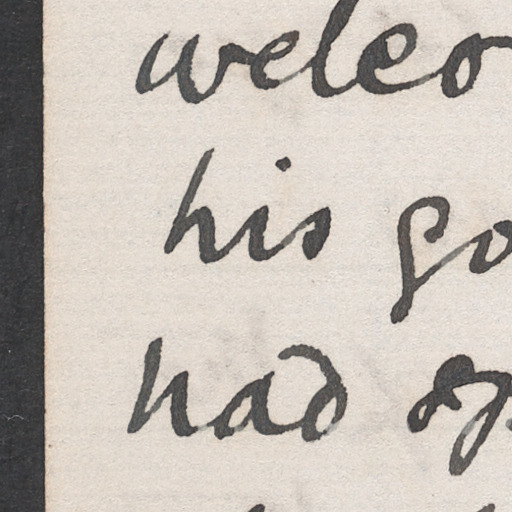 welco
his go
had op